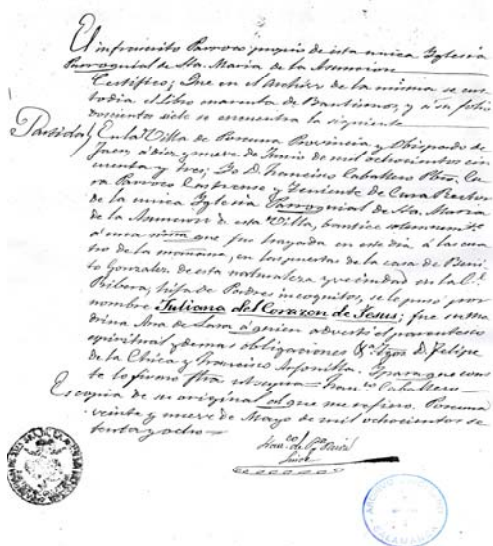 El infrascrito Parroco propio de esta unica Yglesia
Parroquial de Sta. Maria de la Asuncion
Certifico; Que en el Archivo de la misma se cus-
todia el libro cuarenta de Bautismos, y a su folio
doscientos siete se encuentra la siguiente
Partida} En la Villa de Porcuna Provincia y Obispado de
Jaen, á diez y nueve de Junio de mil ochocientos cin-
cuenta y tres; Yo D. Francisco Caballero Pbro. Cu-
ra Parroco Castrense y Teniente de Cura Rector
de la unica Yglesia Parroquial de Sta. Maria
de la Asuncion de esta Villa, bautice solemnemte.
á una niña que fue hayada en este dia á las cua-
tro de la mañana, en las puertas de la casa de Beni-
to Gonzalez de esta naturaleza y vecindad en la C.
Ribera, hija de Padres incognitos, se le puso por
nombre Juliana del Corazon de Jesus; fue su Ma-
drina Ana de Lara á quien adverti el parentesco
espiritual y demas obligaciones D. Felipe
de la Chica y Francisco Y para que cons-
te lo firmo fha ut supra = Franco. Caballero
Es copia de su original al que me refiero. Porcuna
veinte y nueve de Mayo de mil ochocientos se-
tenta y ocho =
ARCHIVO
SALAMANCA